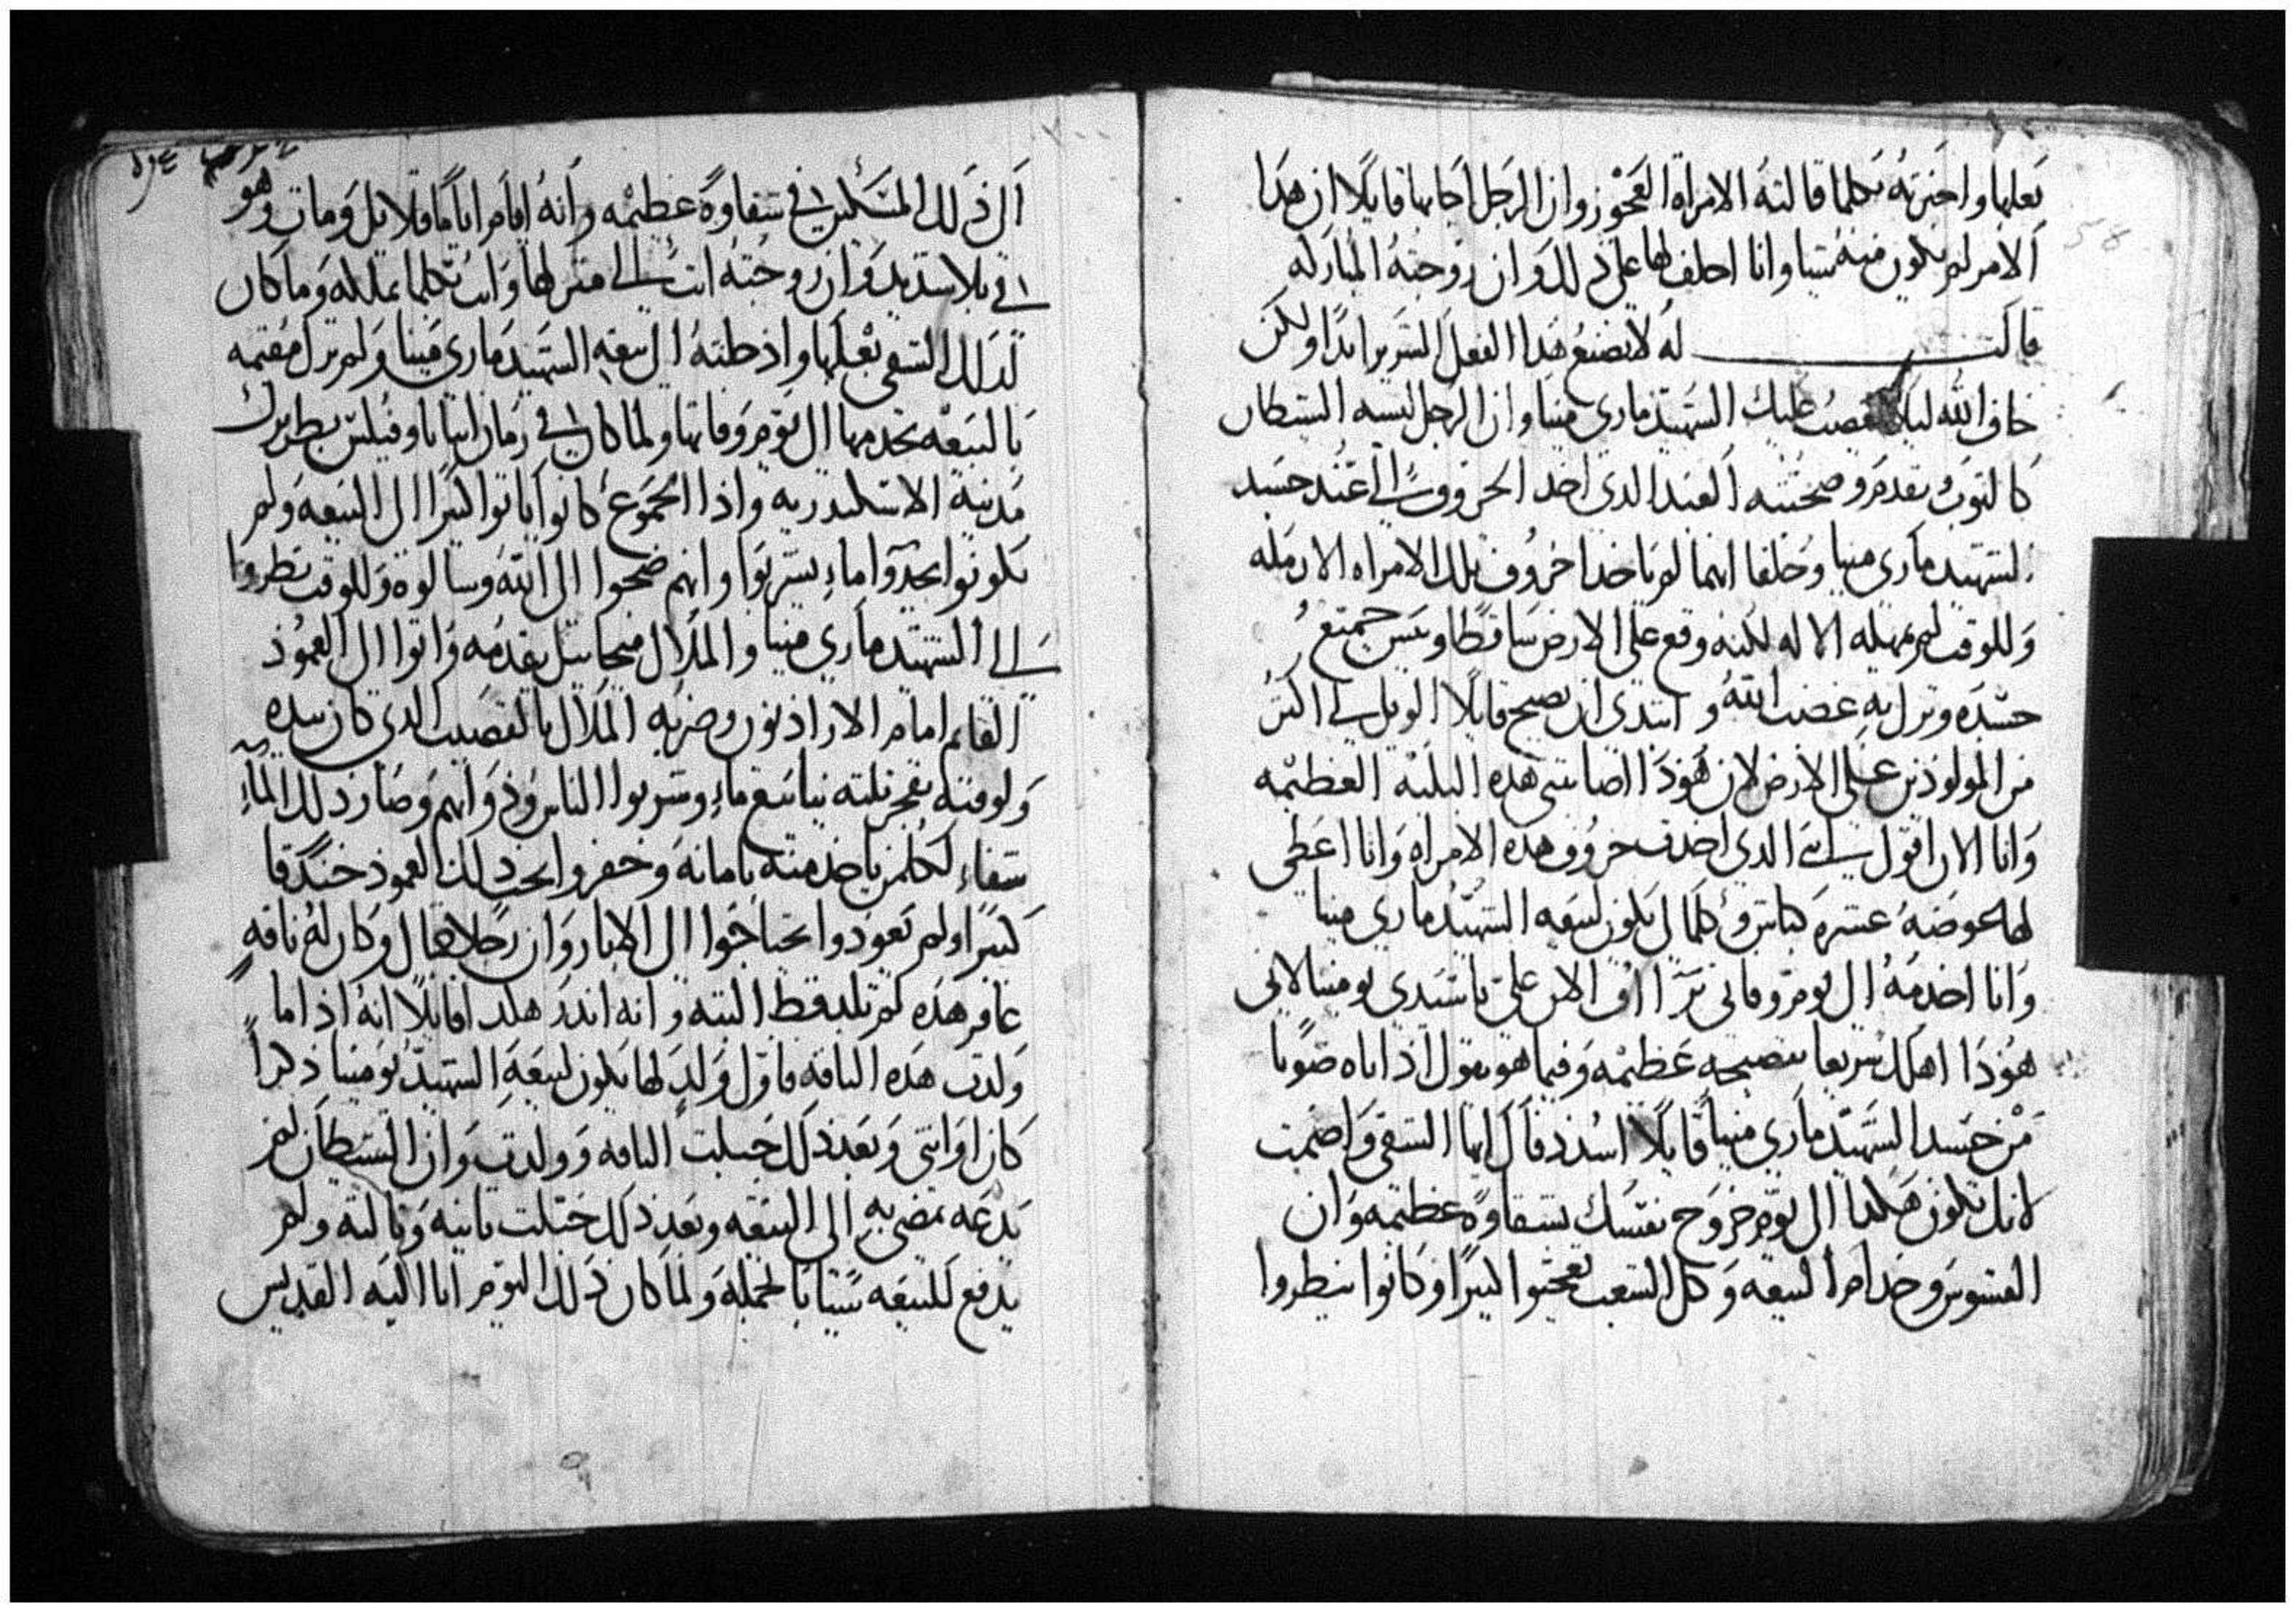 بعلها واخبرته بكلما قالته الامراة العجوز وان الرجل اجابها قايلا ان هدا
الامر لم يكون منه شيا وانا احلف لها على دلك وان زوجته المباركه
قالت له لا تصنع هدا الفعل الشرير ابدا ولكن
خاف الله ليلا يغضب عليك الشهيد ماري مينا وان الرجل لبسه الشيطان
كالتوب وتقدم وصحبته العبد الدي اخد الخروف الى عند جسد
الشهيد ماري مينا وحلفا انهما لم ياخدا خروف تلك الامراه الارمله
وللوقت لم يمهله الاله لكنه وقع على الارض ساقطا ويبس جميع
جسده ونزل به غضب الله وابتدى ان يصيح قايلا الويل لي اكتر
من المولودين على الارض لان هودا اصابتني هده البليه العظيمه
وانا الان اقول انني الدي اخدت خروف هده الامراه وانا اعطي
لها عوضه عشره كباش وكلما لي يكون لبيعه الشهيد ماري مينا
وانا اخدمه الى يوم وفاتي تراااف الان علي يا سيدي بومينا لانى
هودا اهلك سريعا بفضيحه عظيمه وفيما هو يقول اذا باه صوتا
من جسد الشهيد ماري مينا قايلا اسدد فاك ايها الشقي واصمت
لانك تكون هكدا الى يوم خروج نفسك بشقاوة عظيمه وان
القسوس وخدام البيعه وكل الشعب تعجبوا كتيرا وكانوا ينظروا
الى ذلك المسكين في شقاوة عظيمه وانه اقام اياما قلايل ومات وهو
في بلا شديد وان زوجته اتت الى منزلها واتت بكلما تملكه وما كان
لدلك الشقي بعلها واذخلته الى بيعه الشهيد ماري مينا ولم تزل مقيمه
بالبيعه تخدمها الى يوم وفاتها ولما كان في زمان انبا تاوفيلس بطريرك
مدينة الاسكندريه واذا الجموع كانوا ياتوا كتيرا الى البيعه ولم
يكونوا يجدوا ماء يشربوا وانهم ضجوا الى الله وسالوه وللوقت نظروا
الى الشهيد ماري مينا والملاك ميخاييل يقدمه واتوا الى العمود
القايم امام الاراذيون وضربه الملاك بالقضيب الدي كان بيده
ولوقته تفجر تلته ينابيع ماء وشربوا الناس ودوابهم وصار ذلك الماء
شفاء لكلمن ياخد منه بامانه وحفروا تحت دلك العمود خندقا
كبيرا ولم يعودوا يحتاجوا الى الابار وان رجلا جمال وكان له ناقه
عاقر هذه لم تلد قط البته وانه اندر هكدا قايلا انه اذا ما
ولدت هذه الناقه فاول ولد لها يكون لبيعه الشهيد بومينا ذكرا
كان او انتى وبعد ذلك حبلت الناقه وولدت وان الشيطان لم
يدعه يمضي به الى البيعه وبعد ذلك حبلت تانيه وتالته ولم
يدفع للبيعه شيا بالجمله ولما كان ذلك اليوم اتا اليه القديس